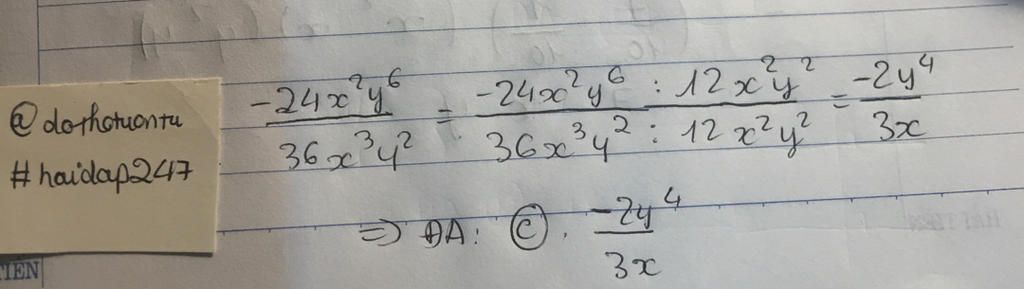 @dothotuontu
#haidap247
-24x²y⁶ / 36x³y² = -24x²y⁶ : 12x²y² / 36x³y² : 12x²y² = -2y⁴ / 3x
=> ĐA: Ⓒ. -2y⁴ / 3x
TIEN